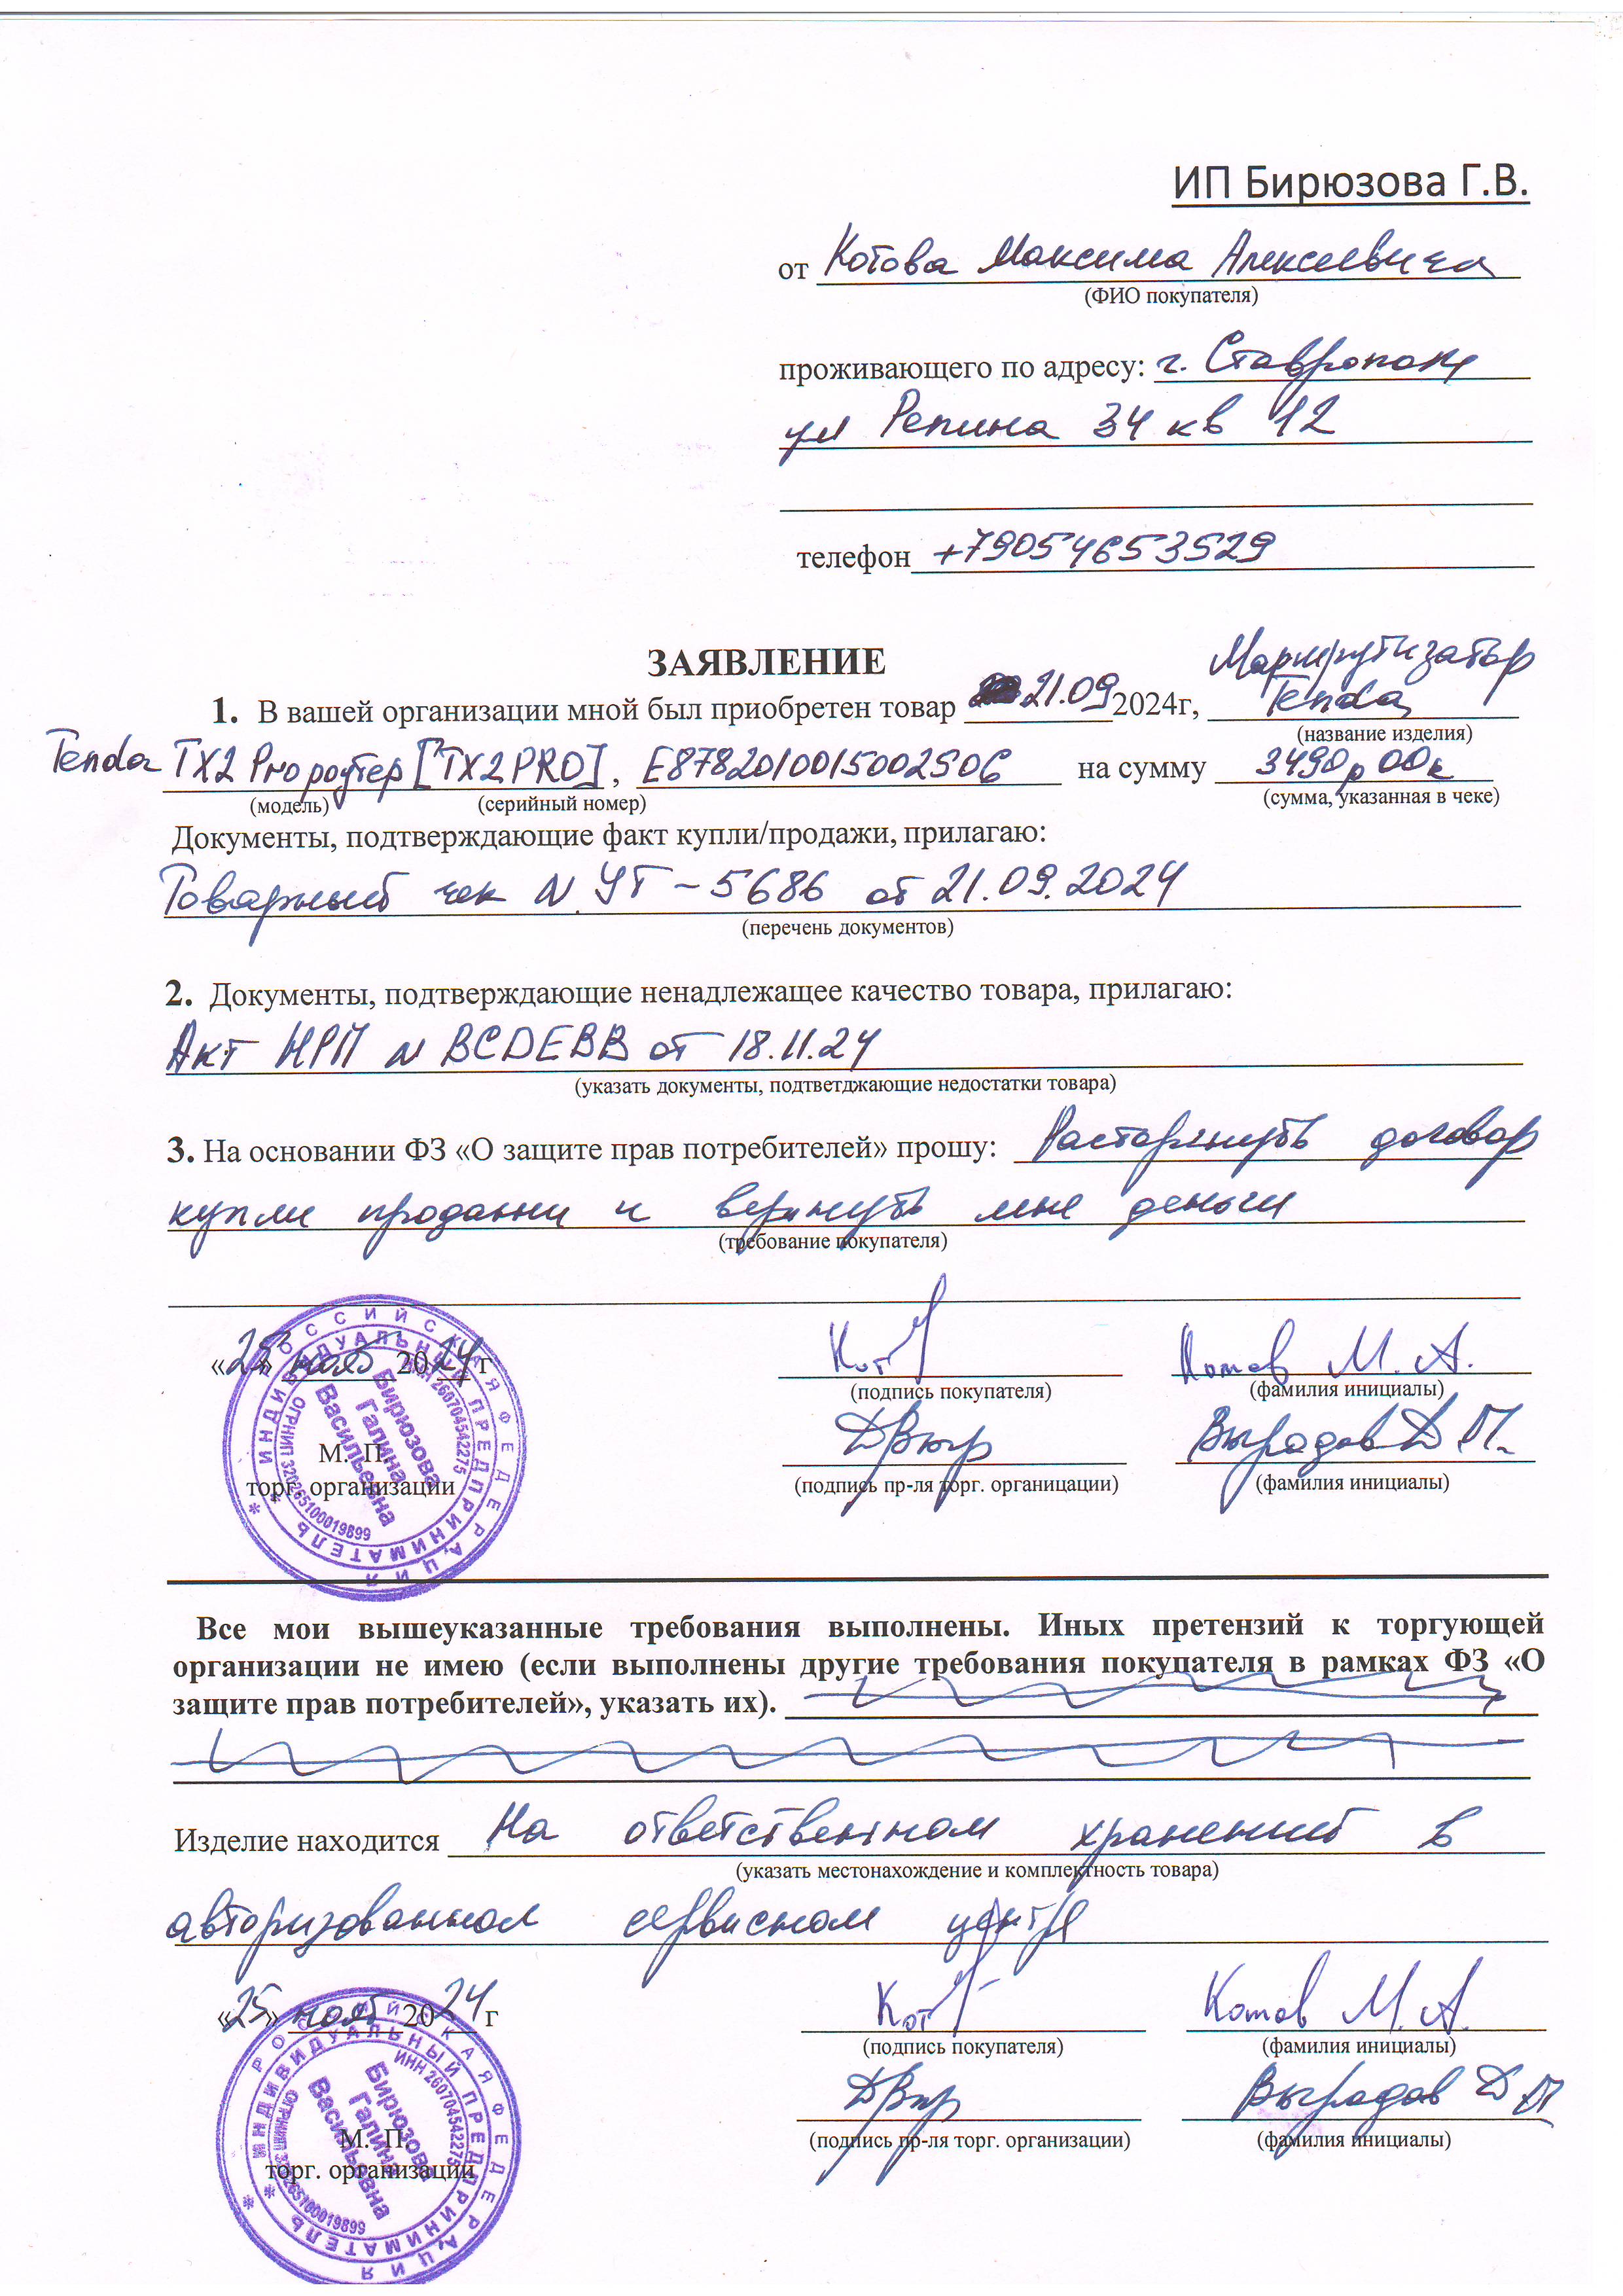 ИП Бирюзова Г.В.
от Котова Максима Алексеевича
(ФИО покупателя)
проживающего по адресу: г. Ставрополь
ул Репина 34 кв 12
телефон +79054653529
ЗАЯВЛЕНИЕ
Маршрутизатор
1. В вашей организации мной был приобретен товар 21.09 2024г, Tenda
(название изделия)
Tenda TX2 Pro роутер [TX2PRO], E8782010015002506 на сумму 3490р 00к
(модель) (серийный номер) (сумма, указанная в чеке)
Документы, подтверждающие факт купли/продажи, прилагаю:
Товарный чек N УТ-5686 от 21.09.2024
(перечень документов)
2. Документы, подтверждающие ненадлежащее качество товара, прилагаю:
Акт НРП N BCDEBB от 18.11.24
(указать документы, подтветджающие недостатки товара)
3. На основании ФЗ «О защите прав потребителей» прошу: Расторгнуть договор
купли продажи и вернуть мне деньги
(требование покупателя)
«25» нояб 2024 г Кот Котов М.А.
(подпись покупателя) (фамилия инициалы)
М. П.
торг. организации
(подпись пр-ля торг. органицации) (фамилия инициалы)
РОССИЙСКАЯ ФЕДЕРАЦИЯ
ИНДИВИДУАЛЬНЫЙ ПРЕДПРИНИМАТЕЛЬ
ИНН 260704542275
Бирюзова
Галина
Васильевна
ОГРНИП 320265100019899
Все мои вышеуказанные требования выполнены. Иных претензий к торгующей
организации не имею (если выполнены другие требования покупателя в рамках ФЗ «О
защите прав потребителей», указать их).
Изделие находится На ответственном хранении в
(указать местонахождение и комплектность товара)
авторизованном сервисном центре
«25» нояб 2024 г Кот Котов М.А.
(подпись покупателя) (фамилия инициалы)
М. П.
торг. организации
(подпись пр-ля торг. организации) (фамилия инициалы)
РОССИЙСКАЯ ФЕДЕРАЦИЯ
ИНДИВИДУАЛЬНЫЙ ПРЕДПРИНИМАТЕЛЬ
ИНН 260704542275
Бирюзова
Галина
Васильевна
ОГРНИП 320265100019899